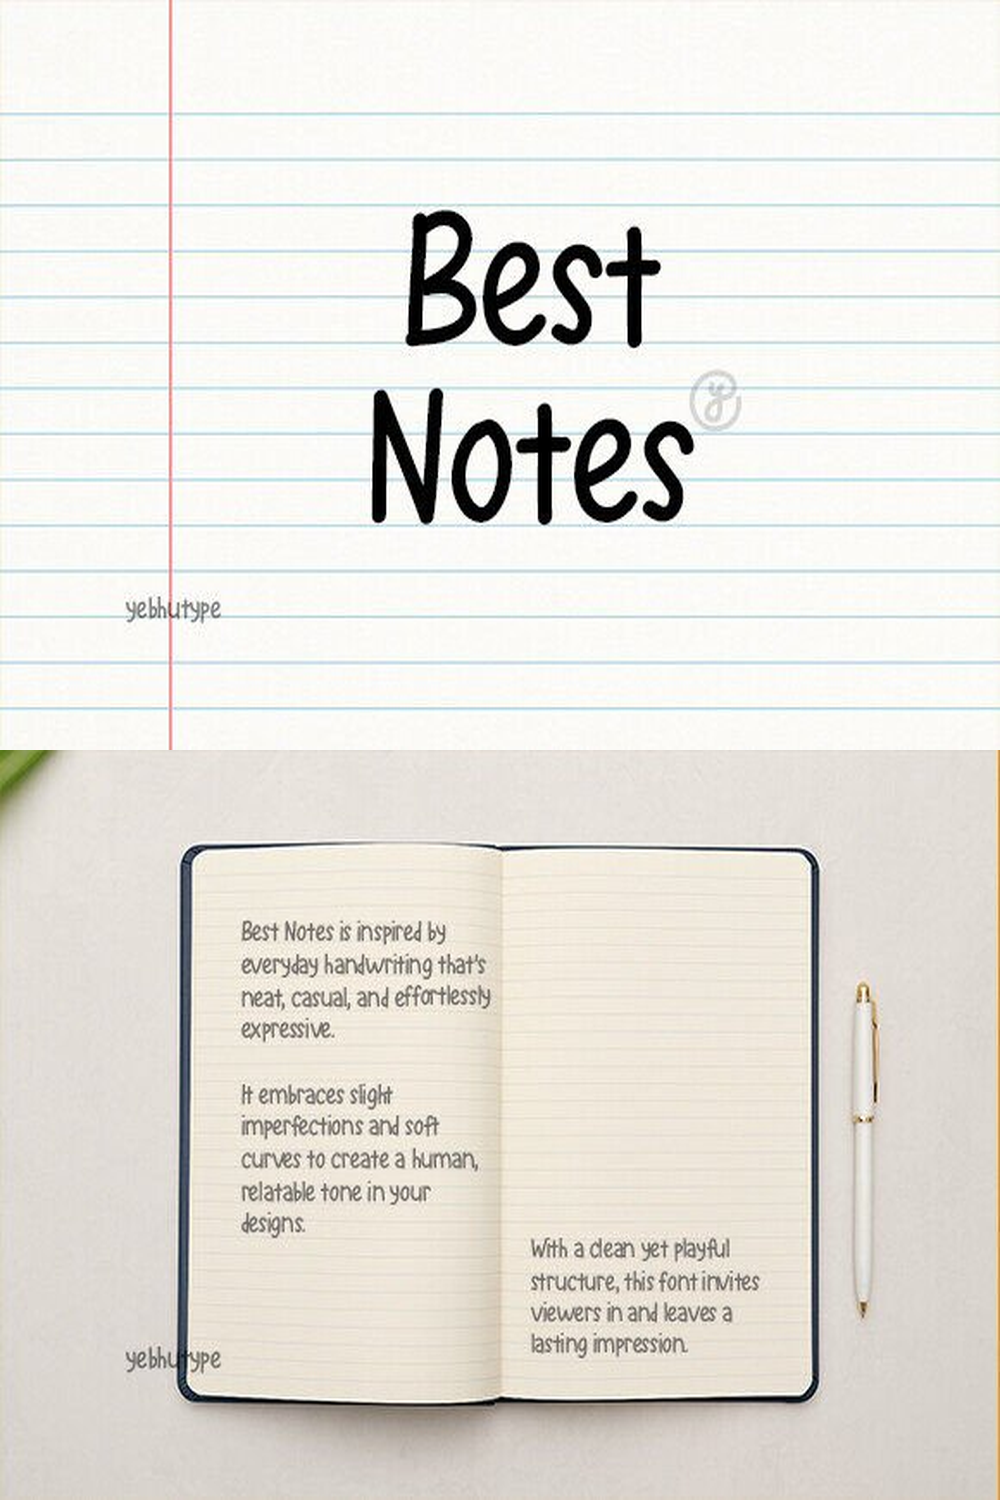 Best
Notes
yebhutype
Best Notes is inspired by
everyday handwriting that's
neat, casual, and effortlessly
expressive.
It embraces slight
imperfections and soft
curves to create a human,
relatable tone in your
designs.
With a clean yet playful
structure, this font invites
viewers in and leaves a
lasting impression.
yebhutype